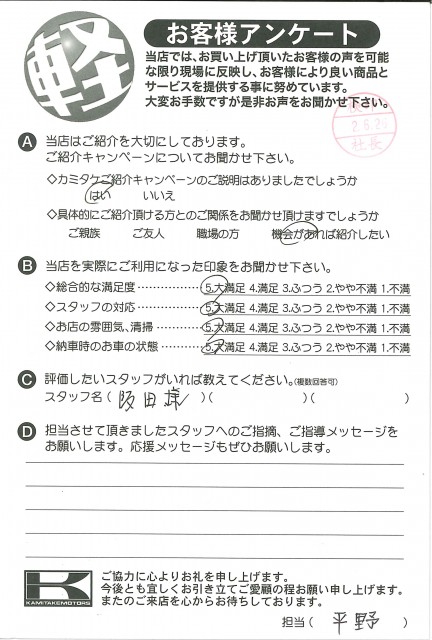 軽
お客様アンケート
当店では、お買い上げ頂いたお客様の声を可能
な限り現場に反映し、お客様により良い商品と
サービスを提供する事に努めています。
大変お手数ですが是非お声をお聞かせ下さい。
社長
A 当店はご紹介を大切にしております。
ご紹介キャンペーンについてお聞かせ下さい。
◇カミタケご紹介キャンペーンのご説明はありましたでしょうか
はい いいえ
◇具体的にご紹介頂ける方とのご関係をお聞かせ頂けますでしょうか
ご親族 ご友人 職場の方 機会があれば紹介したい
B 当店を実際にご利用になった印象をお聞かせ下さい。
◇総合的な満足度……………5.大満足 4.満足 3.ふつう 2.やや不満 1.不満
◇スタッフの対応……………5.大満足 4.満足 3.ふつう 2.やや不満 1.不満
◇お店の雰囲気、清掃………5.大満足 4.満足 3.ふつう 2.やや不満 1.不満
◇納車時のお車の状態………5.大満足 4.満足 3.ふつう 2.やや不満 1.不満
C 評価したいスタッフがいれば教えてください。(複数回答可)
スタッフ名(阪田様)( )( )
D 担当させて頂きましたスタッフへのご指摘、ご指導メッセージを
お願いします。応援メッセージもぜひお願いします。
K
KAMITAKEMOTORS
ご協力に心よりお礼を申し上げます。
今後とも宜しくお引き立てご愛顧の程お願い申し上げます。
またのご来店を心からお待ちしております。
担当(平野)